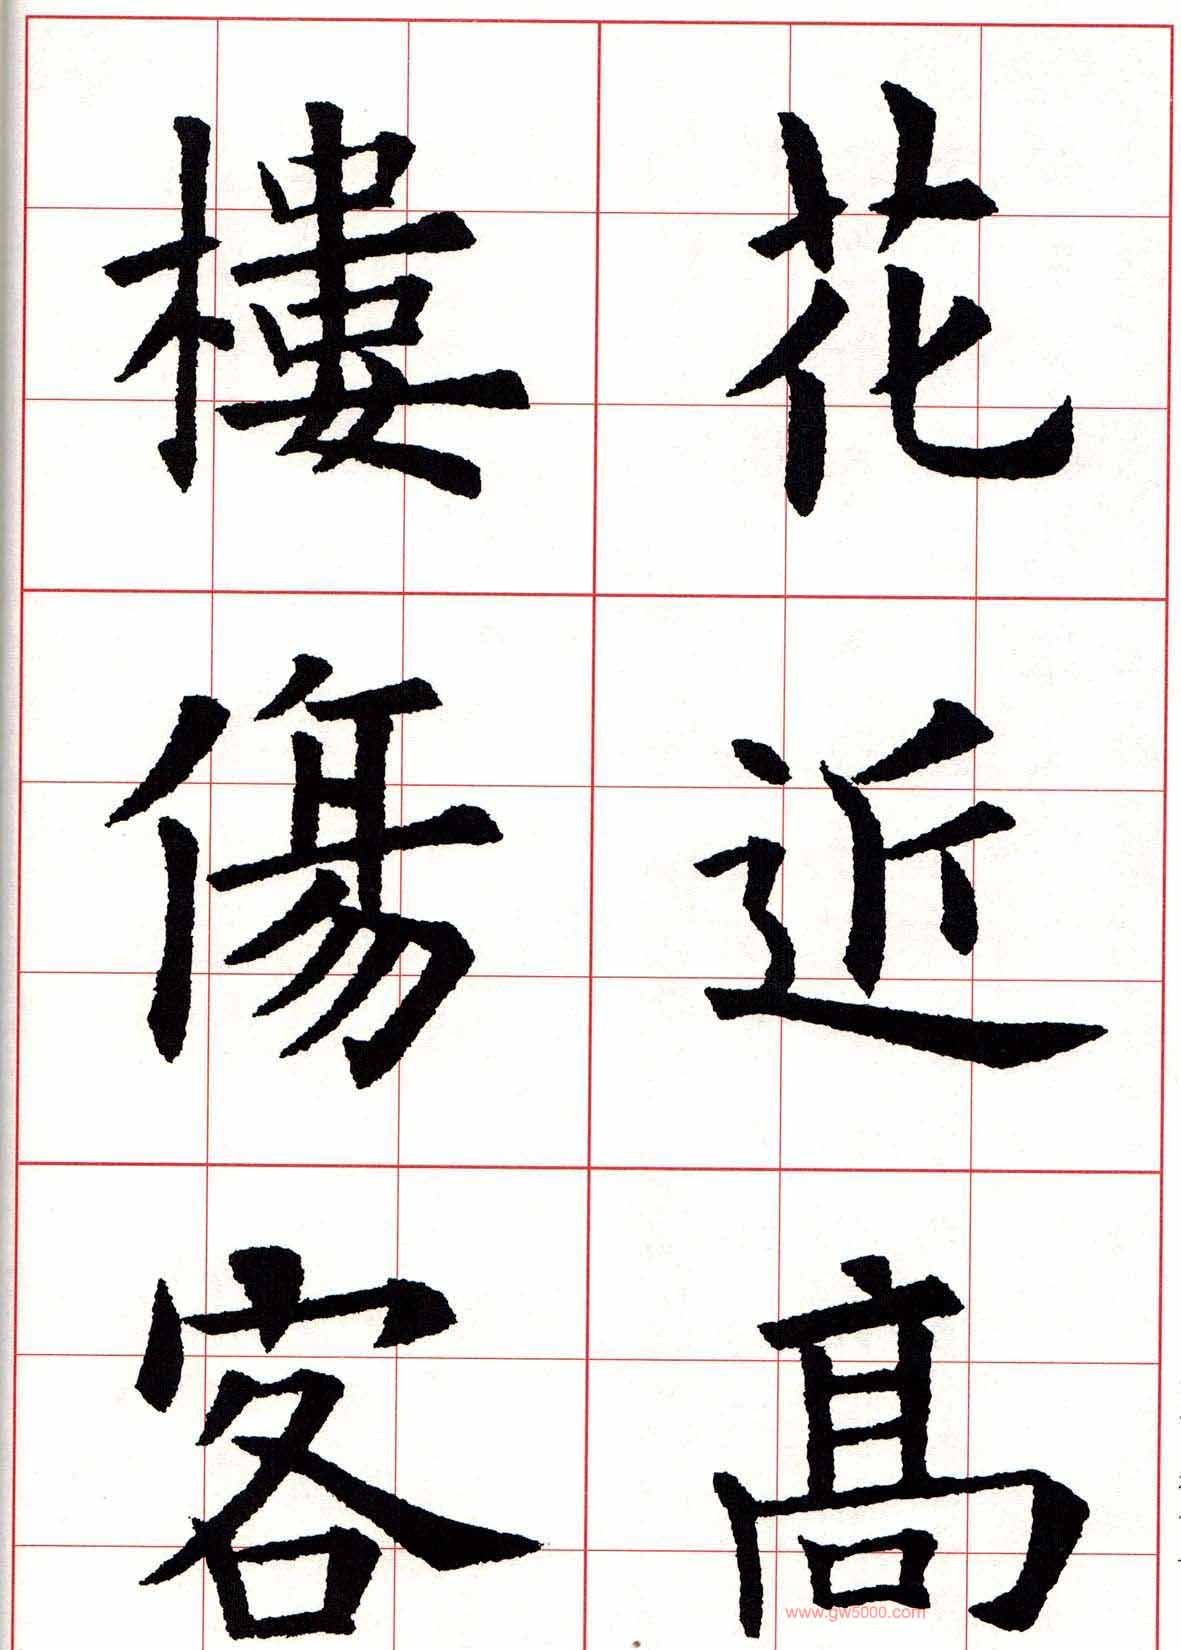 花近高
樓傷客
www.gw5000.com